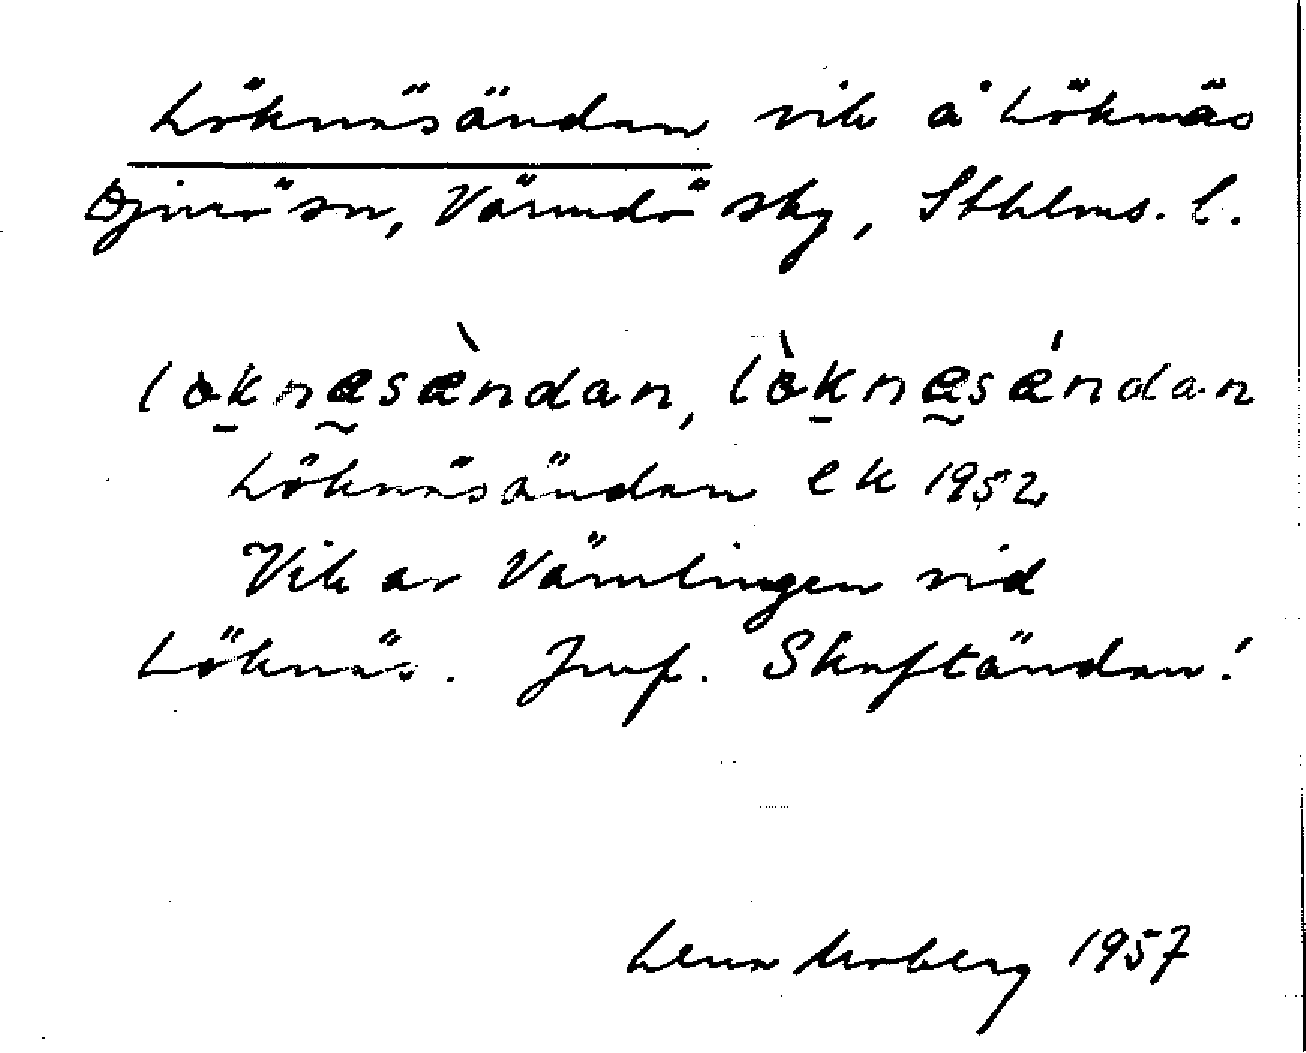 Löknäsändan vik å Löknäs
Djurö sn, Värmdö skg, Sthlms. l.
löknæsæ̀ndan, lö̀knæsǽndan
Löknäsändan ek 1952
Vik av Vämlingen vid
Löknäs. Jmf. Skaftändan!
Lena Moberg 1957